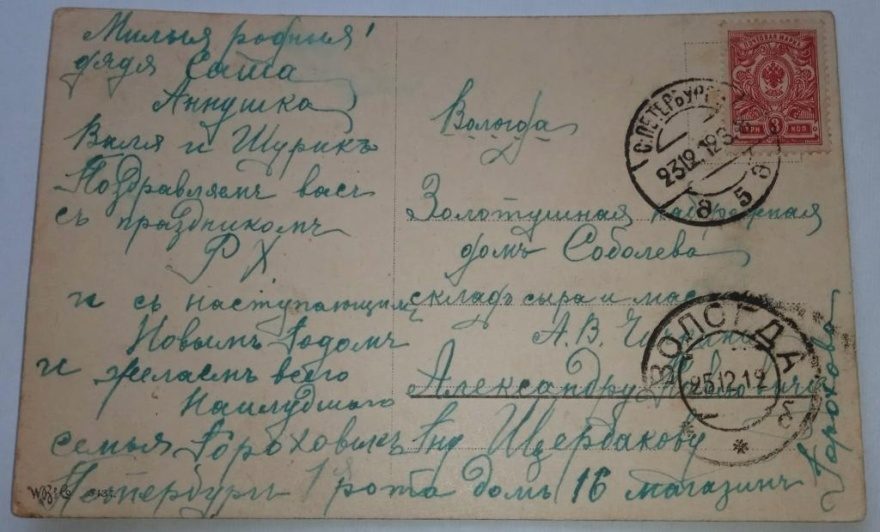 Милыя родныя!
дядя Саша
Аннушка
Валя и Шурикъ
Поздравляемъ васъ
съ праздникомъ
Р Х
и съ наступающимъ
Новымъ Годомъ
и желаемъ всего
Наилудшаго
семья Гороховыхъ
Петербургъ 1 рота домъ 16 магазинъ
Горохова
Вологда
Золотушная набережная
домъ Соболева
складъ сыра и мас
А. В.
Александру
Щербакову
С.ПЕТЕРБУРГ
23 12 12
8 5
ВОЛОГДА
25 12 12
ПОЧТОВАЯ МАРКА
ТРИ 3 КОП